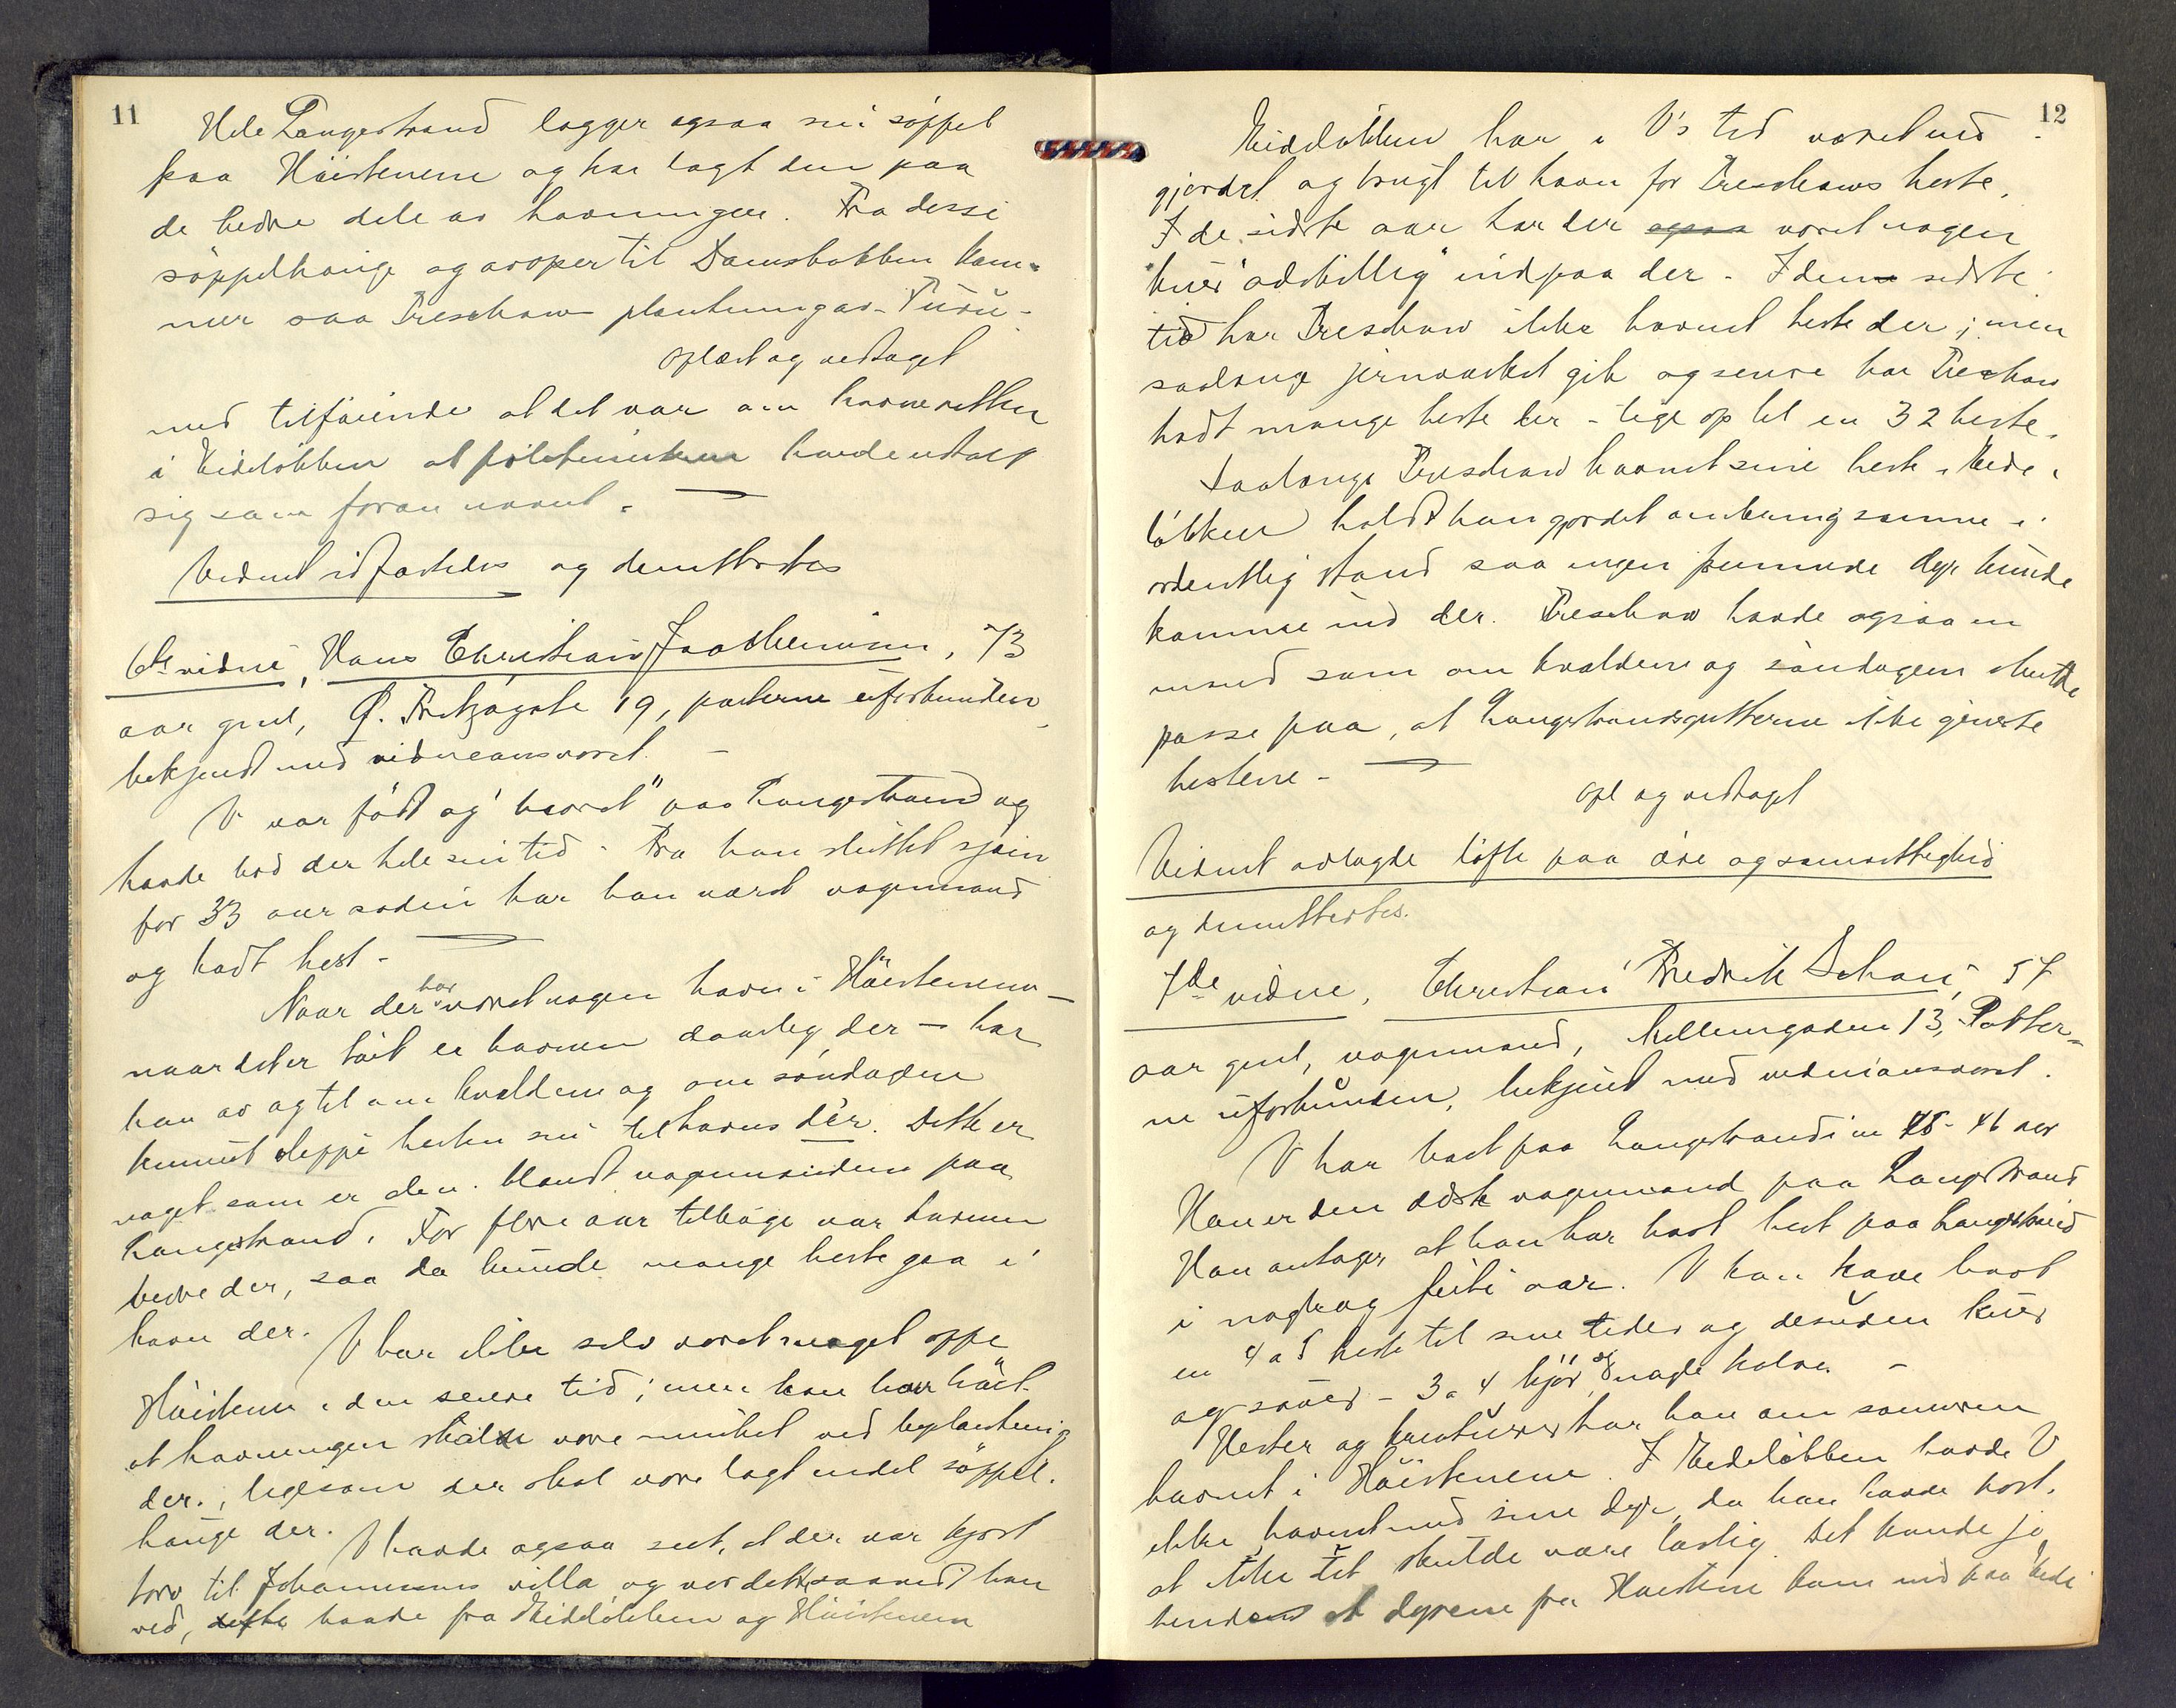 11
Hele Langestrand lægger ogsaa sin søppel
paa Høistenene og har lagt den paa
de bedre dele av havningen. Fra disse
søppelhauge og avover til Damsbakken kom-
mer saa Treschows plantninger. Furu-
oplæst og vedtaget
med tilføiende at det var om havneretten
i Kideløkken at havde uttalt
sig som foran nævnt.
Vidnet edfæstedes og demitteredes
6te vidne, Hans Christian Joachimsen, 73
aar gml, Ø. Fritzøgate 19, parterne uforbunden
bekjendt med vidneansvaret. -
V. var født og "baaret" paa Langestrand og
havde bod der hele sin tid. Fra han sluttet sjøen
for 33 aar siden har han været vognmand
og hadt hest. -
Naar der har været nogen havn i Høistenene -
naar det er tørt er havnen daarlig der - har
han av og til om kvældene og om søndagen
kunnet sleppe hesten sin til havns der. Dette er
noget som er alm. blandt vognmændene paa
Langestrand. For flere aar tilbage var havnen
bedre der, saa da kunde mange heste gaa i
havn der.
V. har ikke selv været meget oppe
Høistenene i den senere tid; men han har hørt
at havningen skal være minket ved beplantning
der, ligesom der skal være lagt endel søppel-
hauge der.
V havde ogsaa seet, at der var kjørt
torv til Johannesens villa og var dette, saavidt han
ved, baade fra Kideløkken og Høistenene
12
Kideløkken har i V's tid været ind-
gjerdet og brugt til havn for Treschows heste.
I de sidste aar har der ogsaa været nogen
kuer "adskillig" indpaa der. I den sidste
tid har Treschow ikke havnet heste der; men
saalænge jernverket gik og senere har Treschow
hadt mange heste der - lige op til en 32 heste.
Saalænge Treschow havnet sine heste i Kide-
løkken holdt han gjerdet omkring samme i
ordentlig stand saa ingen fremmede dyr kunde
komme ind der. Treschow havde ogsaa en
mand som om kvældene og søndagen skulde
passe paa, at Langestrandsgutterne ikke gjenerte
hestene. -
opl og vedtaget
Vidnet avlagde løfte paa ære og samvittighed
og demitteredes.
7de vidne, Christian Fredrik Schau, 57
aar gml, vognmand, 13, Parter-
ne uforbunden, bekjent med vidneansvaret.
V har boet paa Langestrand i en 45-46 aar
Han er den ældste vognmand paa Langestrand
Han antager, at han har havt hest paa Langestrand
i nogtrog førti aar. V kan have havt
en 4 a 5 heste til sine tider og desuden kuer
og sauer - 3 a 4 kjør og nogle kalve. -
Hester og kreaturer har han om sommeren
havnet i Høistenene. I Kideløkken havde V
ikke havnet med sine dyr, da han havde hørt,
at ikke det skulde være lovlig. Det kunde jo
hende at dyrene fra Høistene kom ind paa Kide